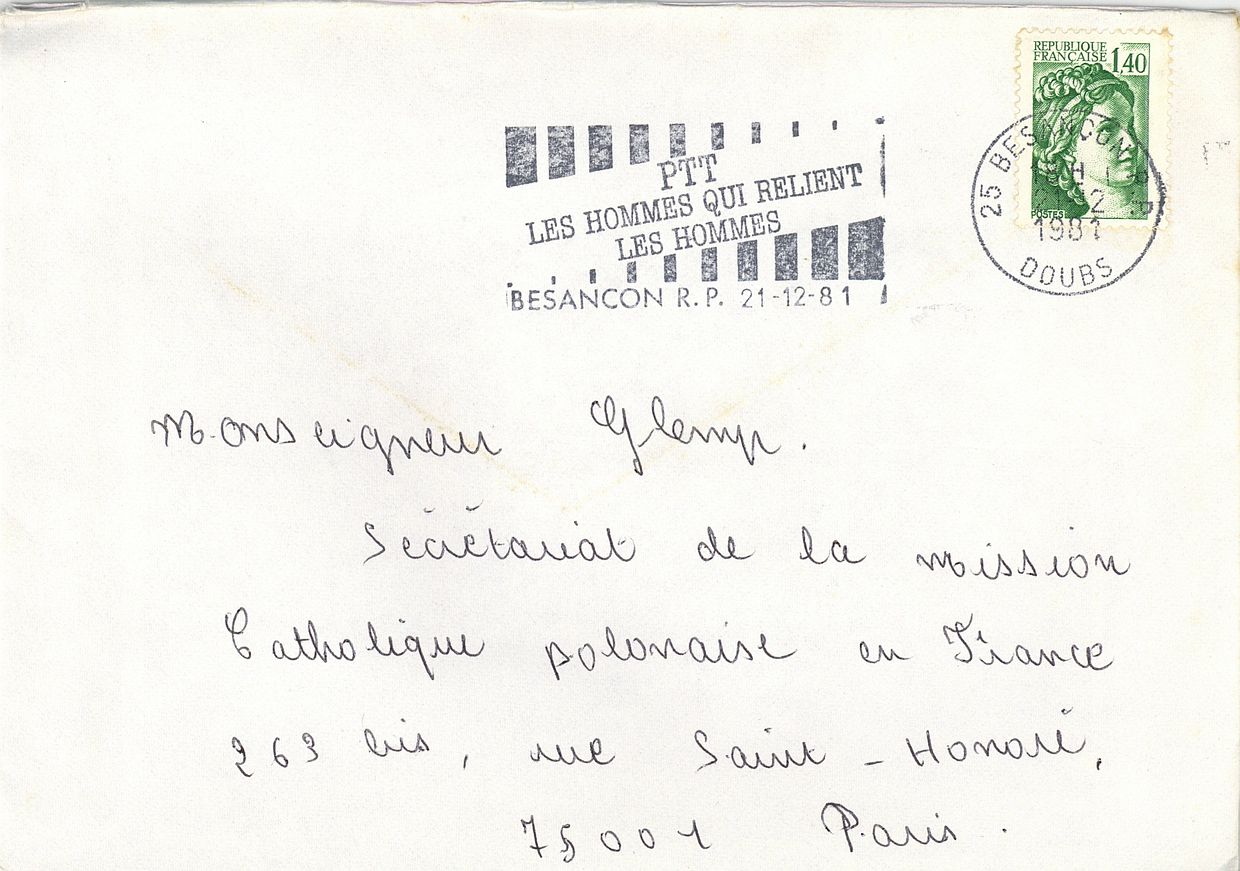 REPUBLIQUE
FRANÇAISE 1,40
POSTES
25 BESANCON R.P.
1981
DOUBS
PTT
LES HOMMES QUI RELIENT
LES HOMMES
BESANCON R.P. 21-12-81
Monseigneur Glemp.
Sécrétariat de la mission
Catholique polonaise en France
263 bis, rue Saint-Honoré,
75001 Paris.